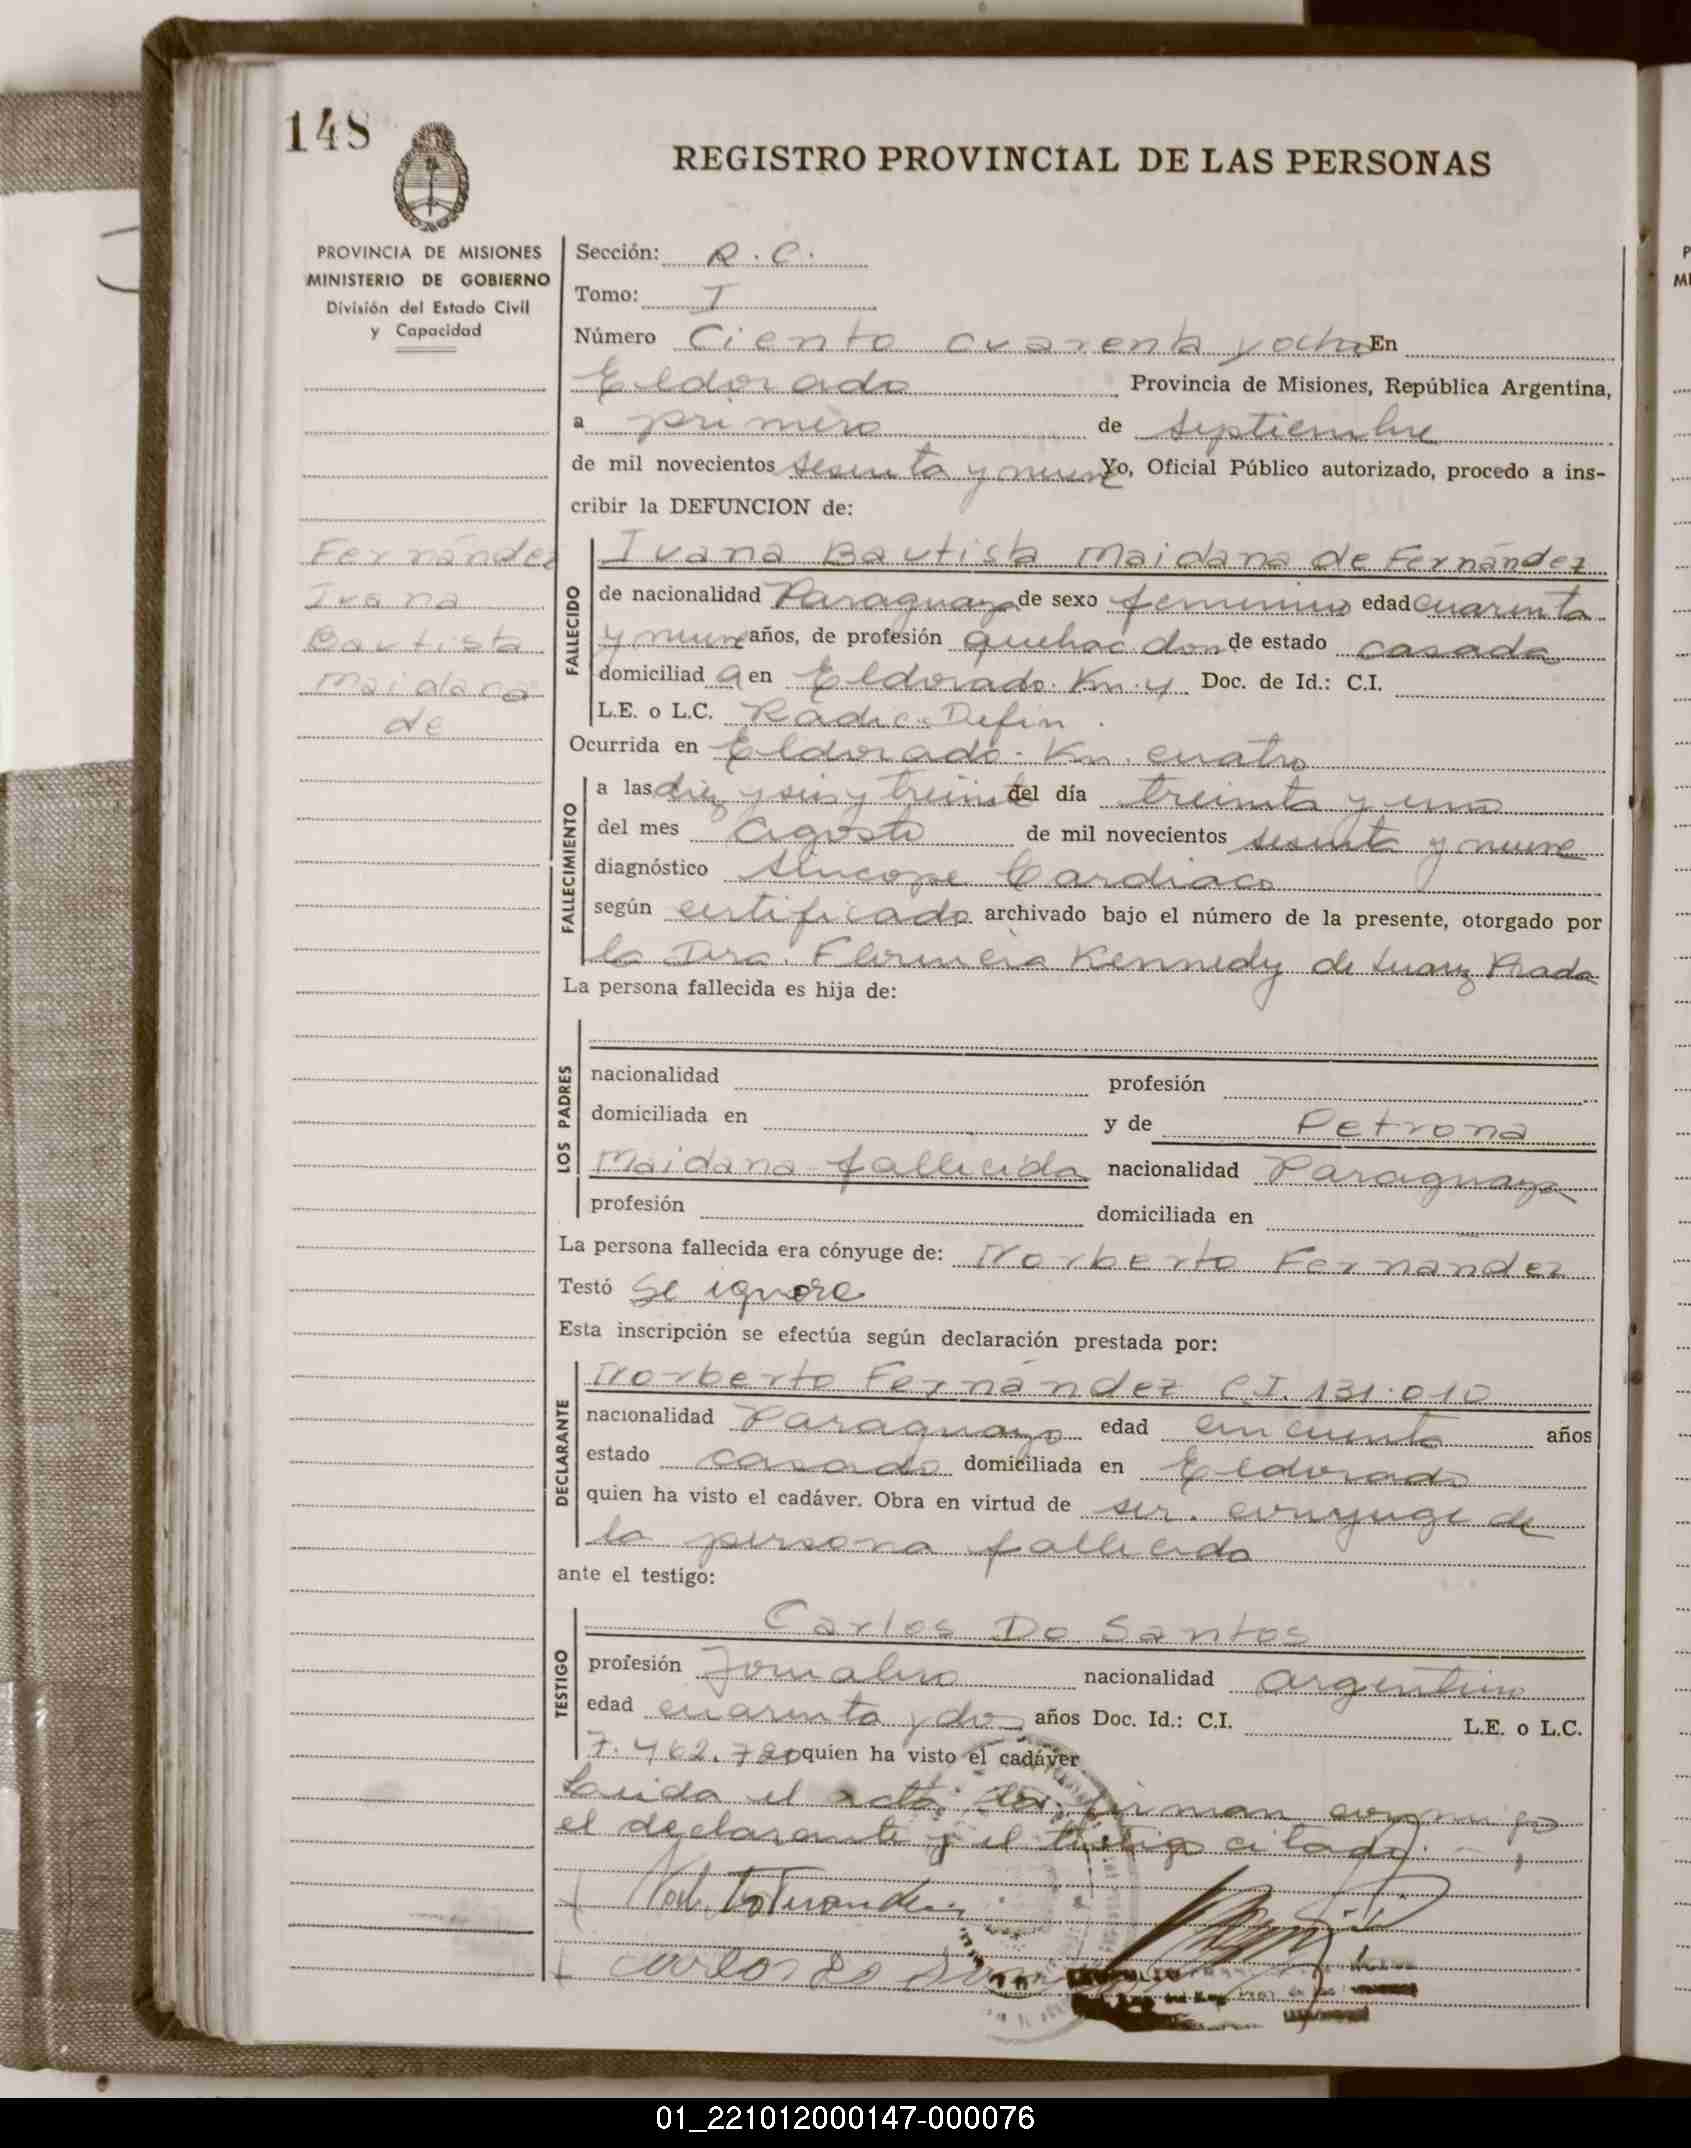 148
REGISTRO PROVINCIAL DE LAS PERSONAS
PROVINCIA DE MISIONES
MINISTERIO DE GOBIERNO
División del Estado Civil
y Capacidad
Sección: R. C.
Tomo: I
Número Ciento cuarenta y ocho En
Eldorado Provincia de Misiones, República Argentina,
a primero de septiembre
de mil novecientos sesenta y nueve Yo, Oficial Público autorizado, procedo a ins-
cribir la DEFUNCION de:
Fernández
Ivana
Bautista
Maidana
de
FALLECIDO
Ivana Bautista Maidana de Fernández
de nacionalidad Paraguaya de sexo femenino edad cuarenta
y nueve años, de profesión quehac. dom de estado casada
domiciliad a en Eldorado. Km. 4 Doc. de Id.: C.I.
L.E. o L.C. Radic. Defin.
Ocurrida en Eldorado. Km. cuatro
FALLECIMIENTO
a las diez y seis y treinta del día treinta y uno
del mes Agosto de mil novecientos sesenta y nueve
diagnóstico Síncope Cardiaco
según certificado archivado bajo el número de la presente, otorgado por
la Dra. Florencia Kennedy de Prada
La persona fallecida es hija de:
LOS PADRES
nacionalidad profesión
domiciliada en y de Petrona
Maidana fallecida nacionalidad Paraguaya
profesión domiciliada en
La persona fallecida era cónyuge de: Norberto Fernandez
Testó Se ignora
Esta inscripción se efectúa según declaración prestada por:
DECLARANTE
Norberto Fernández C.I. 131.010
nacionalidad Paraguayo edad cincuenta años
estado casado domiciliada en Eldorado
quien ha visto el cadáver. Obra en virtud de ser. conyuge de
la persona fallecida
ante el testigo:
TESTIGO
Carlos Do Santos
profesión Jornalero nacionalidad argentino
edad cuarenta y dos años Doc. Id.: C.I. L.E. o L.C.
7.462.720 quien ha visto el cadáver
Leida el acta, la firman conmigo
el declarante y el testigo citado.
Carlos Do
01_221012000147-000076